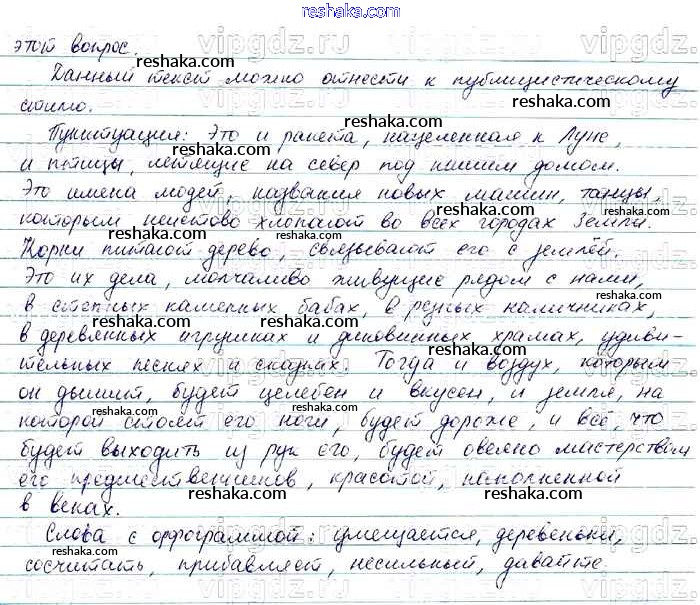 reshaka.com
этот вопрос.
Данный текст можно отнести к публицистическому
стилю.
Пунктуация: Это и ракета, нацеленная к Луне,
и птицы, летящие на север под нашим домом.
Это имена людей, названия новых машин, танцы,
которым неистово хлопают во всех городах Земли.
Корни питают дерево, связывают его с землёй.
Это их дела, молчаливо живущие рядом с нами,
в степных каменных бабах, в резных наличниках,
в деревянных игрушках и диковинных храмах, удиви-
тельных песнях и сказках. Тогда и воздух, которым
он дышит, будет целебен и вкусен, и земля, на
которой стоят его ноги, будет дороже, и всё, что
будет выходить из рук его, будет овеяно мастерством
его предшественников, красотой, наполненной
в веках.
Слова с орфограммой: умещается, деревеньки,
сосчитать, прибавляет, несильный, давайте.